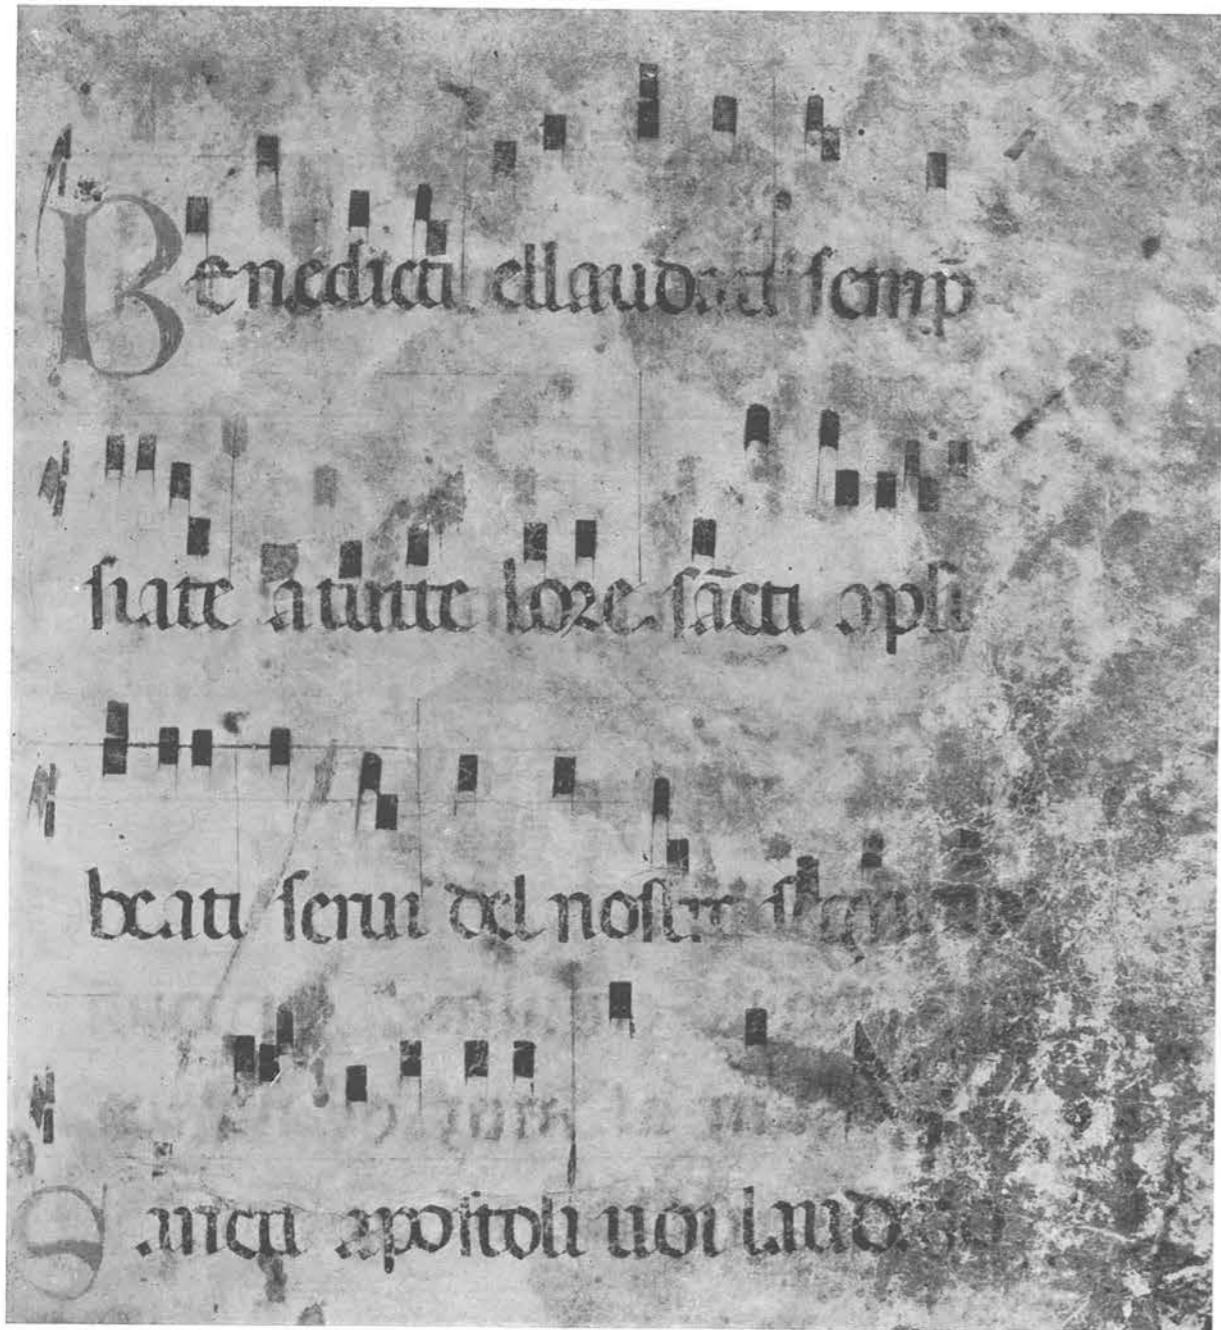 Benedicti ellaudati semp̄
siate atutte lore sācti apli
beati serui del nostro
Sancti apostoli uoi laud